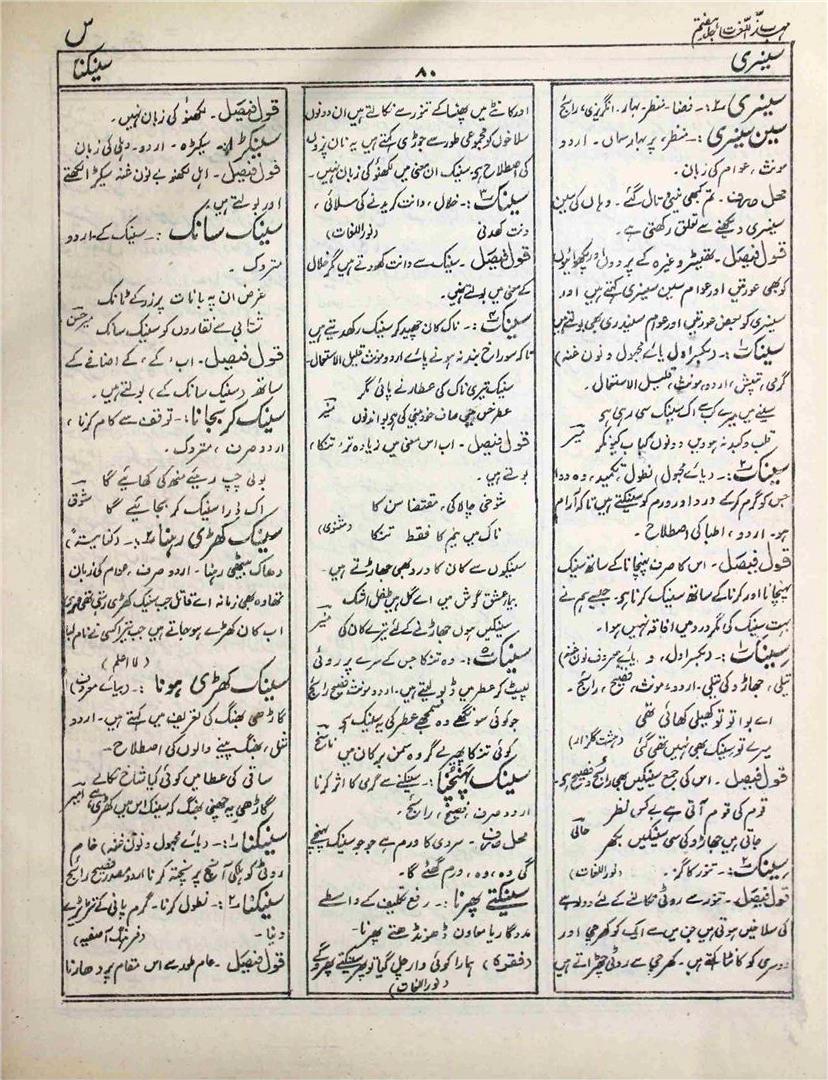 مہذب اللغات جلد ہفتم
س
سینری
۸۰
سینکنا
سینری ۲:۔ فضا۔ منظر۔ بہار۔ انگریزی، رائج
سین سینری:۔ منظر، پربہار سماں۔ اردو
مونث، عوام کی زبان۔
محل صرف۔ تم کبھی نینی تال گئے۔ وہاں کی سین
سینری دیکھنے سے تعلق رکھتی ہے۔
قول فیصل۔ تھیٹر وغیرہ کے پردوں اور پچھوائیوں
کو بھی عورتیں اور عوام سین سینری کہتے ہیں اور
سینری کو بعض عورتیں اور عوام سینیدری بھی بولتے ہیں
سینک ۱:۔ (بکسر اول یائے مجہول و نون غنہ)
گرمی، تپش، اردو، مونث، قلیل الاستعمال۔
سینے میں میرے کب سے اک سینک سی رہی ہے
قلب و کبد نہ ہوویں دونوں کباب کیونکر میر
سینک ۲:۔ (یائے مجہول) نطول، تکمید، وہ دوا
جس کو گرم کرکے درد اور ورم کو سینکتے ہیں تاکہ آرام
ہو۔ اردو، اطبا کی اصطلاح۔
قول فیصل۔ اس کا صرف پہنچانا کے ساتھ سینک
پہنچانا اور کرنا کے ساتھ سینک کرنا ہے۔ جیسے ہم نے
بہت سینک کی مگر درد میں افاقہ نہیں ہوا۔
سینک ۱:۔ (بکسر اول، و یائے معروف نون غنہ)
تیلی، جھاڑو کی تیلی۔ اردو، مونث، فصیح، رائج۔
اے بوا تو تو کھیلی کھائی تھی
میرے تو سینک بھی نہیں تھی گئی (بہشت گلزار)
قول فیصل۔ اس کی جمع سینکیں بھی رائج و فصیح ہے۔
قوم کی قوم آتی ہے بے کس نظر
جاتی ہیں جھاڑو کی سی سینکیں بکھر حالی
سینک ۲:۔ تنور کا گز۔ (نور اللغات)
قول فیصل۔ تنور سے روٹی نکالنے کے لئے دو لوہے
کی سلاخیں ہوتی ہیں جن میں سے ایک کو کھرچی اور
دوسری کو کانٹا کہتے ہیں۔ کھرچی سے روٹی چھڑاتے ہیں
اور کانٹے میں پھنسا کے تنور سے نکالتے ہیں ان دونوں
سلاخوں کو مجموعی طور سے جوڑی کہتے ہیں یہ نان پزوں
کی اصطلاح ہے، سینک ان معنی میں لکھنؤ کی زبان نہیں۔
سینک ۳:۔ خلال، دانت کریدنے کی سلائی،
دنت کھدنی (نور اللغات)
قول فیصل۔ سینک سے دانت کھودتے ہیں مگر خلال
کے معنی میں بولتے نہیں۔
سینک ۴:۔ ناک کان چھید کو سینک رکھ دیتے ہیں
تاکہ سوراخ بند نہ ہونے پائے اردو مونث قلیل الاستعمال۔
سینک تیری ناک کی عطار نے پائی مگر
عطر خس میں صاف خوشبو کی ہے بو اندنوں منیر
قول فیصل۔ اب اس معنی میں زیادہ تر، تنکا،
بولتے ہیں۔
شوخی چالاکی، مقتضا سن کا
ناک میں نیم کا فقط تنکا (مثنوی)
سینکوں سے کان کا درد بھی جھاڑتے ہیں۔
بیمار عشق گوش میں اے گل ہیں طفل اشک
سینکیں ہوں جھاڑنے کے لئے تیرے کان کی منیر
سینک ۵:۔ وہ تنکا جس کے سرے پر روئی
لپیٹ کر عطر میں ڈبولیتے ہیں۔ اردو مونث فصیح رائج
جو کوئی سونگھے وہ سمجھے عطر کی یہ سینک ہے
کوئی تنکا پھیرے گر وہ سمن بر کان میں ناسخ
سینک پہنچنا:۔ سینکنے سے گرمی کا اثر کرنا
اردو صرف، فصیح، رائج۔
محل صرف۔ سردی کا ورم ہے جوں جوں سینک پہنچے
گی دہ، وہ، ورم گھٹے گا۔
سینکتے پھرنا:۔ رفع تکلیف کے واسطے
مددگار یا معاون ڈھونڈھتے پھرنا۔
(فقرہ) ہمارا کوئی وار چل گیا تو پھر سینکتے پھروگے
(نور اللغات)
قول فیصل۔ لکھنؤ کی زبان نہیں۔
سینکڑا:۔ سیکڑہ۔ اردو۔ دہلی کی زبان
قول فیصل۔ اہل لکھنؤ بے نون غنہ سیکڑا لکھتے
اور بولتے ہیں۔
سینک سانک:۔ سینک کے۔ اردو
متروک۔
غرض ان پہ بانات پر زر کے ٹانک
شتابی سے نقاروں کو سینک سانک میر حسن
قول فیصل۔ اب، کے، کے اضافے کے
ساتھ (سینک سانک کے) بولتے ہیں۔
سینک کر بجانا:۔ توقف سے کام کرنا،
اردو صرف، متروک۔
بولی چپ رہیئے منھ کی کھائیے گا
اک ذرا سینک کر بجائیے گا شوق
سینک کھڑی رہنا:۔ (کنایتہ)
دھاک بیٹھی رہنا۔ اردو صرف، عوام کی زبان
تھا وہ بھی زمانہ اے قاتل جب سینک کھڑی رہتی تھی مری
اب کان کھڑے ہوجاتے ہیں جب تیرا کسی نے نام لیا
(لا اعلم)
سینک کھڑی ہونا:۔ (بیائے معروف)
گاڑھی بھنگ کی تعریف میں کہتے ہیں۔ اردو
مثل، بھنگ پینے والوں کی اصطلاح۔
ساقی کی عطا میں کوئی کیا شاخ نکالے
گاڑھی یہ چھنی بھنگ کہ سینک اس میں کھڑی ہے امیر
سینکنا ۱:۔ (یائے مجہول و نون غنہ) خام
روٹی کو ہلکی آنچ پر پختہ کرنا اردو مصدر فصیح رائج
سینکنا ۲:۔ نطول کرنا۔ گرم پانی کے تریڑے
دینا۔ (فرہنگ آصفیہ)
قول فیصل۔ عام طور سے اس مقام پر دھارنا